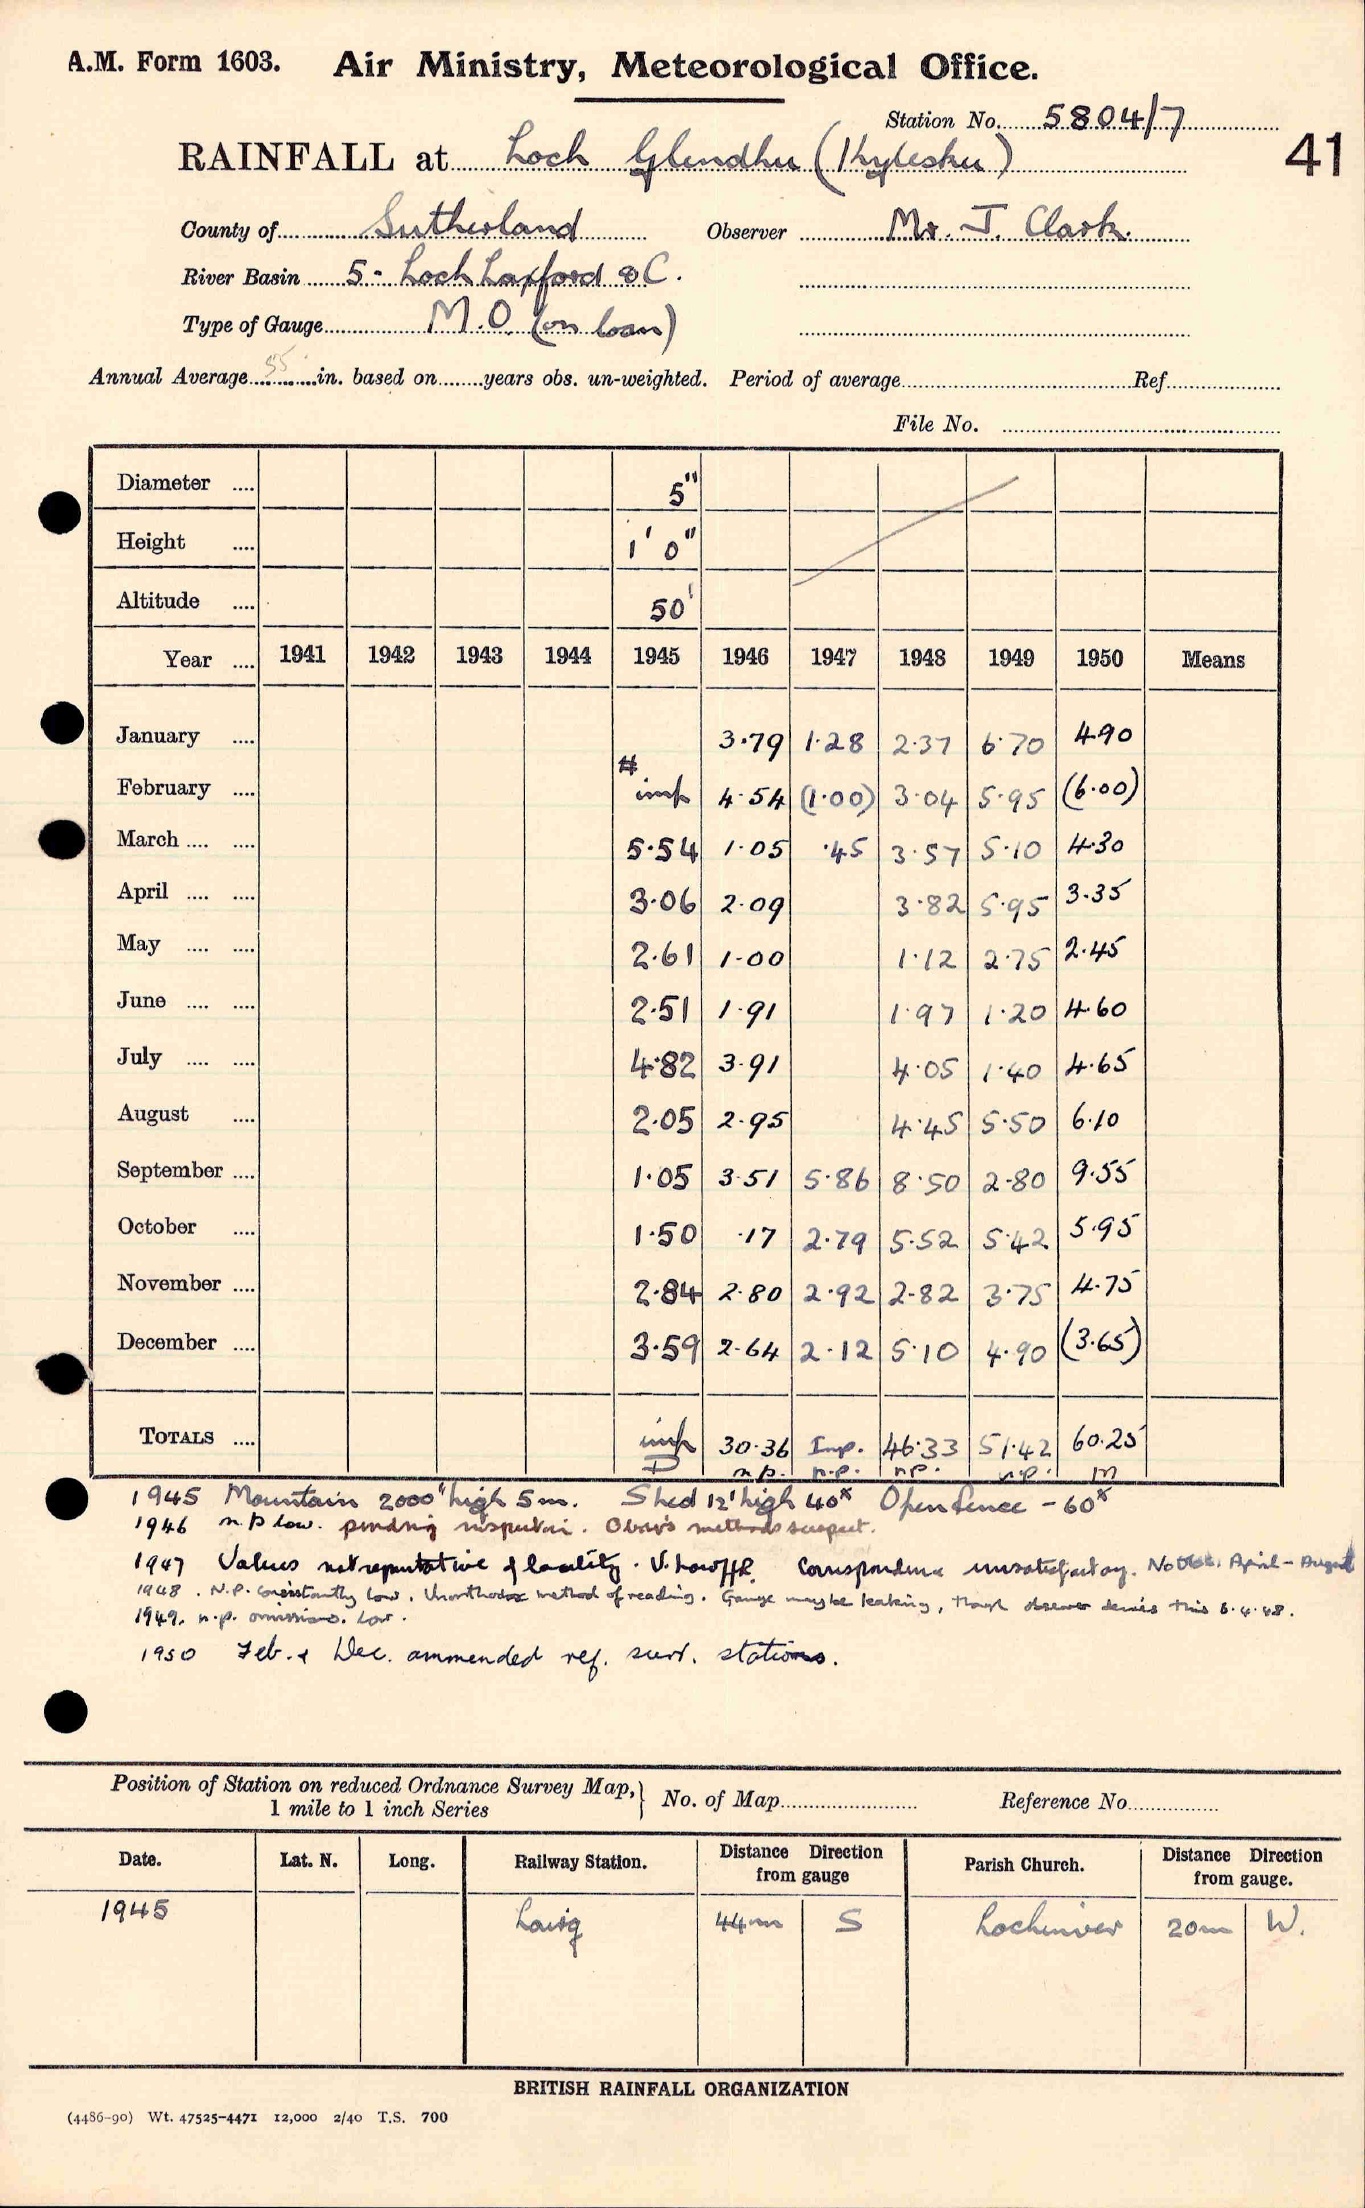 A.M. Form 1603. Air Ministry, Meteorological Office.
Station No. 5804/7
RAINFALL at Loch Glendhu (Kylesku)
41
County of Sutherland Observer Mr. J. Clark.
River Basin 5 - Loch Laxford &C.
Type of Gauge M.O. (on loan)
Annual Average 55 in. based on years obs. un-weighted. Period of average Ref
File No.
Diameter 5"
Height 1' 0"
Altitude 50'
Year 1941 1942 1943 1944 1945 1946 1947 1948 1949 1950 Means
January 3·79 1·28 2·37 6·70 4·90
February # imp 4·54 (1·00) 3·04 5·95 (6·00)
March 5·54 1·05 ·45 3·57 5·10 4·30
April 3·06 2·09 3·82 5·95 3·35
May 2·61 1·00 1·12 2·75 2·45
June 2·51 1·91 1·97 1·20 4·60
July 4·82 3·91 4·05 1·40 4·65
August 2·05 2·95 4·45 5·50 6·10
September 1·05 3·51 5·86 8·50 2·80 9·55
October 1·50 ·17 2·79 5·52 5·42 5·95
November 2·84 2·80 2·92 2·82 3·75 4·75
December 3·59 2·64 2·12 5·10 4·90 (3·65)
TOTALS imp 30·36 Imp. 46·33 51·42 60·25
D n.p. n.p. n.p. n.p. m
1945 Mountain 2000' high 5m. Shed 12' high 40x Open fence - 60x
1946 n.p low. pending inspection. Obser's methods suspect.
1947 Values not reputative of locality. V. low Correspondence unsatisfactory. No obs. April - August
1948. N.P. consistantly low. Unorthodox method of reading. Gauge may be leaking, though observer denies this 6.4.48.
1949. n.p. omissions. low.
1950 Feb. & Dec. ammended ref. surr. stations.
Position of Station on reduced Ordnance Survey Map, 1 mile to 1 inch Series } No. of Map Reference No
Date. Lat. N. Long. Railway Station. Distance Direction from gauge Parish Church. Distance Direction from gauge.
1945 Lairg 44m S Lochinver 20m W.
BRITISH RAINFALL ORGANIZATION
(4486-90) Wt. 47525-4471 12,000 2/40 T.S. 700